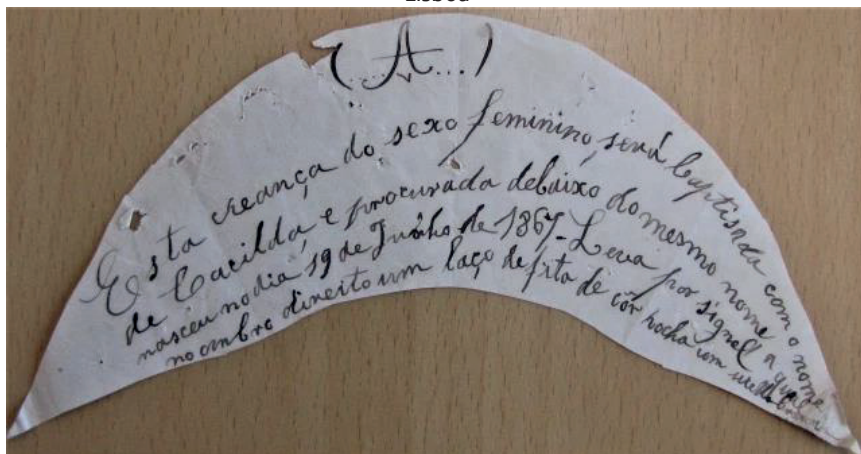 Lisboa
(...A...)
Esta creança do sexo feminino, será baptisada com o nome
de Cacilda, e procurada debaixo do mesmo nome a qual
nasceu no dia 19 de Junho de 1867. Leva por signal
no ombro direito um laço de fita de côr rocha com